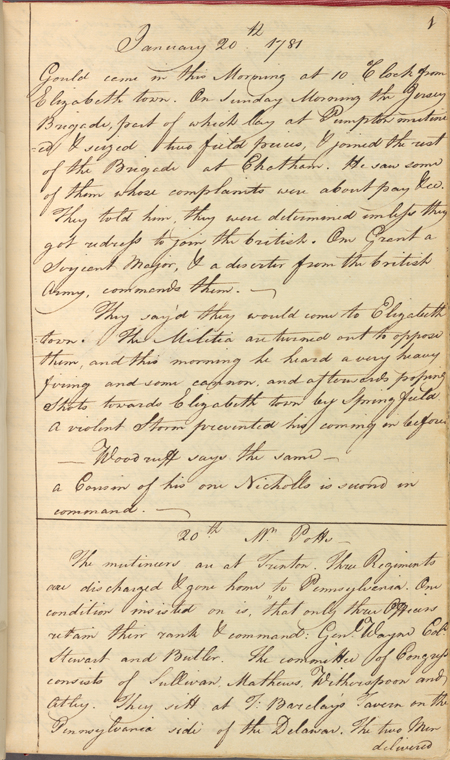 1
January 20th. 1781
Gould came in this Morning at 10 O'Clock from
Elizabeth town. On Sunday Morning the Jersey
Brigade, part of which lay at Pumpton mutine
=ed & seized two field pieces, & joined the rest
of the Brigade at Chatham. He saw some
of them whose complaints were about pay &ca.
They told him, they were determined unless they
got redress to join the British. One Grant a
Serjeant Major, & a deserter from the British
Army, commands them. —
They say'd they would come to Elizabeth
-town. The Militia are turned out to oppose
them, and this morning he heard a very heavy
firing and some cannon, and afterwards popping
Shots, towards Elizabeth town by Springfield
A violent Storm prevented his coming in before
— Woodruff says the same —
a Cousin of his one Nicholls is second in
command. —
20th Mr. Potts
The mutineers are at Trenton. Three Regiments
are discharged & gone home to Pennsylvania. One
condition insisted on is, "that only three Officers
retain their rank & command: Genl. Wayne Cols.
Stewart and Butler. The committee of Congress
consists of Sullivan, Mathews, Witherspoon and
Atley. They sett at T: Barclays Tavern on the
Pennsylvania side of the Delawar. The two Men
delivered